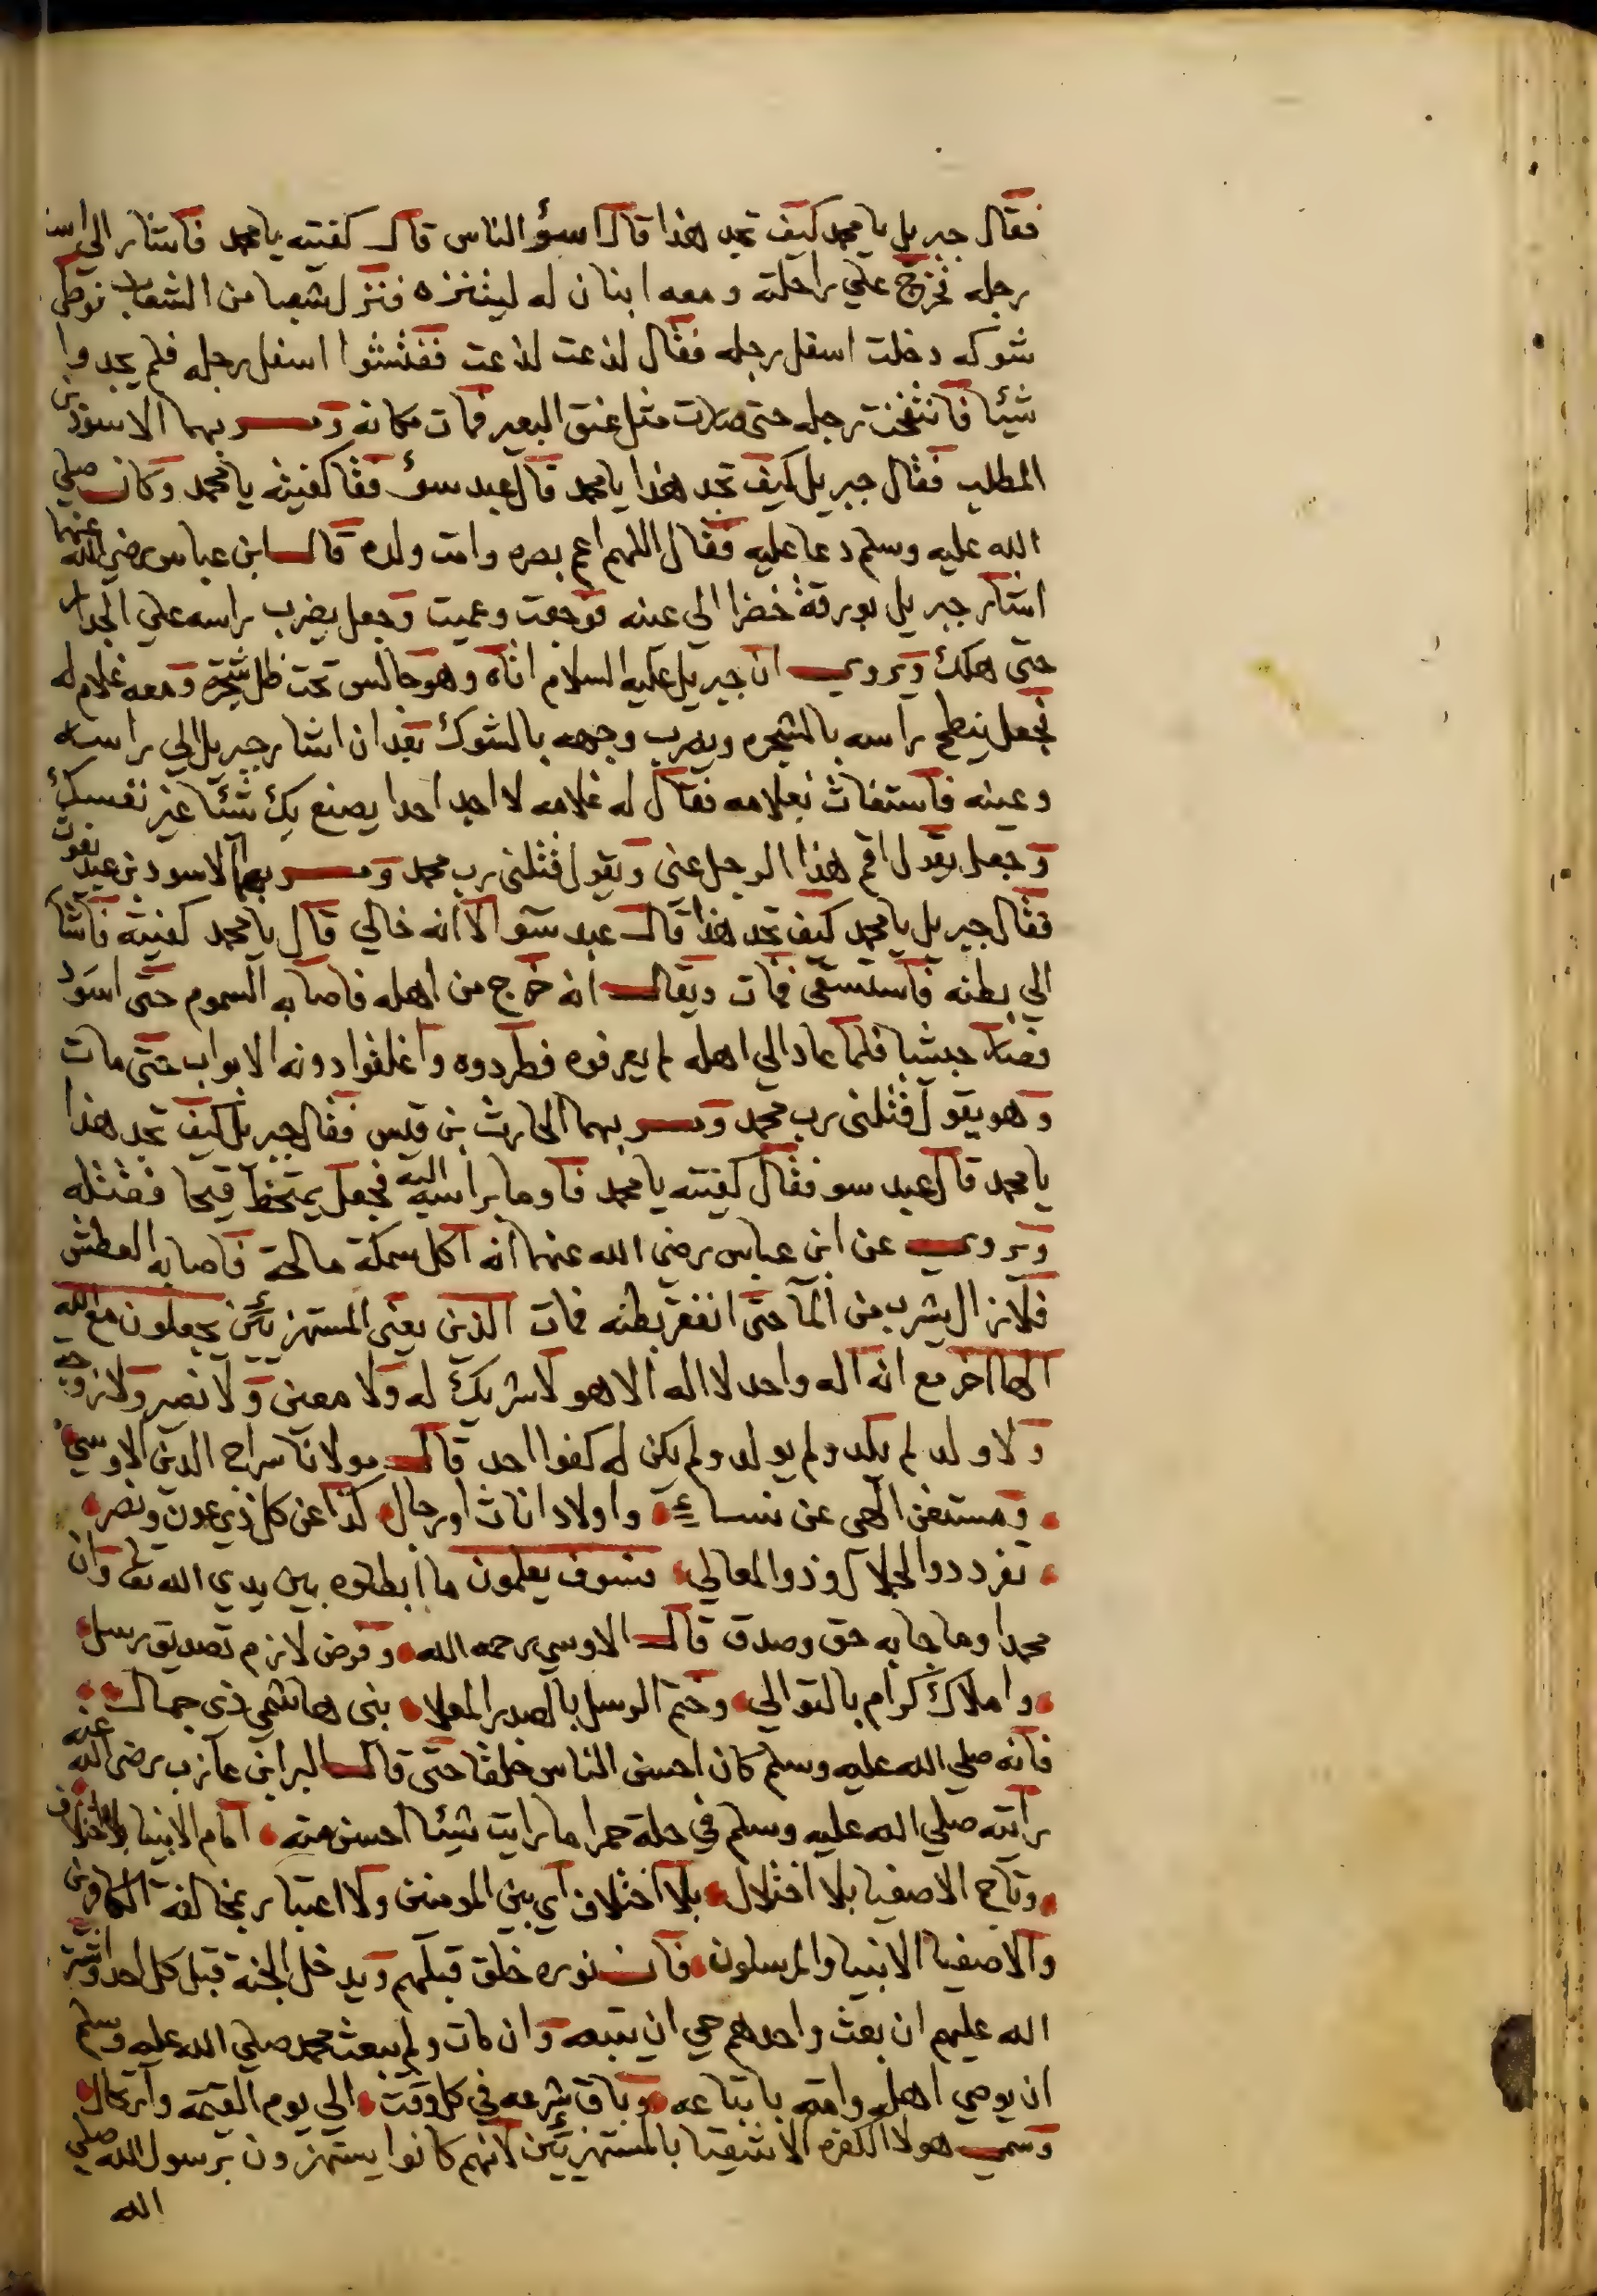 فقال جبريل يا محمد كيف تجد هذا قال اسؤ الناس قال كفيته يا محمد فاشار الي
رجله فخرج علي راحلته ومعه ابنان له ليتنزه فنزل شعبا من الشعاب فوطي
شوكه دخلت اسفل رجله فقال لدغت لدغت ففتشوا اسفل رجله فلم يجدوا
شيئا فانتفخت رجله حتي صارت مثل عنق البعير فمات مكانه ومر بهما الاسود بن
المطلب فقال جبريل كيف تجد هذا يا محمد قال عبد سوء فقا كفيته يا محمد وكان صلي
الله عليه وسلم دعا عليه فقال اللهم اعم بصره وامت ولده قال ابن عباس رضي الله عنهما
اشار جبريل بورقة خضرا الي عينه فوجعت وعميت وجعل يضرب براسه علي الجدار
حتي هلك ويروي ان جبريل عليه السلام اتاه وهو جالس تحت ظل شجرة ومعه غلام له
فجعل ينطح براسه بالشجره ويضرب وجهه بالشوك بعد ان اشار جبريل الي راسه
وعينه فاستغاث بغلامه فقال له غلامه لا اجد احدا يصنع بك شئا غير نفسك
وجعل يقول اقم هذا الرجل عني ويقول قتلني رب محمد ومر بهما الاسود بن عبد يغوث
فقال جبريل يا محمد كيف تجد هذا قال عبد سوء الا انه خالي قال يا محمد كفيته فاشا
الي بطنه فاستسقي فمات ويقال انه خرج من اهله فاصابه السموم حتي اسود
فصار حبشيا فلما عاد الي اهله لم يعرفوه فطردوه واغلقوا دونه الابواب حتي مات
وهو يقول قتلني رب محمد ومر بهما الحارث بن قيس فقال جبريل كيف تجد هذا
يا محمد قال عبد سو فقال كفيته يا محمد فاوما براسه اليه فجعل يمتخط قيحا فقتله
ويروي عن ابن عباس رضي الله عنهما انه اكل سمكة مالحة فاصابه العطش
فلا زال يشرب من الما حتي انفقر بطنه فمات الذين يعني المستهزئين يجعلون مع الله
الها اخر مع انه اله واحد لا اله الا هو لا شريك له ولا معين ولا نصير ولا زوجة
ولا ولد لم يلد ولم يولد ولم يكن له كفوا احد قال مولانا سراج الدين الاوسي
ومستغن الهي عن نساء واولاد اناث او رجال كذا عن كل ذي عون ونصر
تفرد ذو الجلال وذو المعالي فسوف يعلمون ما ابطلوه بين يدي الله تعا وان
محمدا وما جا به حق وصدق قال الاوسي رحمه الله وفرض لازم تصديق رسل
واملاك كرام بالتوالي وختم الرسل بالصدر المعلا نبي هاشمي ذي جمال
فانه صلي الله عليه وسلم كان احسن الناس خلقا حتي قال البرا بن عازب رضي الله عنه
رايته صلي الله عليه وسلم في حلة حمرا ما رايت شيئا احسن منه امام الانبيا بلا اختلاف
وتاج الاصفيا بلا اختلال بلا اختلاف اي بين المومنين ولا اعتبار بمخالفة الكافرين
والاصفيا الانبيا والمرسلون فان نوره خلق قبلهم ويدخل الجنة قبل كل احد
الله عليهم ان بعث واحدهم حي ان يتبعه وان مات ولم يبعث محمد صلي الله عليه وسلم
ان يوصي اهله وامته باتباعه وباق شرعه في كل وقت الي يوم القيمة وارتحال
وسمي هولا الكفرة الاشقيا بالمستهزئين لانهم كانوا يستهزون برسول الله صلي
الله